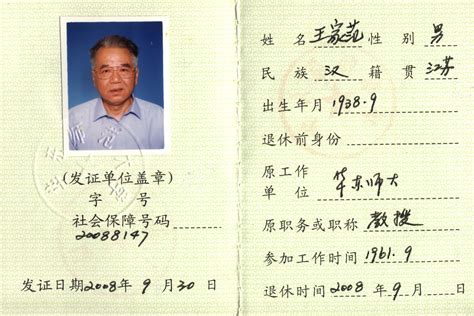 (发证单位盖章)
字 号
社会保障号码
20088147
发证日期2008年 9 月 30 日
姓 名 王家范 性 别 男
民 族 汉 籍 贯 江苏
出生年月 1938.9
退休前身份
原工作
单 位 华东师大
原职务或职称 教授
参加工作时间 1961.9
退休时间 2008 年 9 月 日